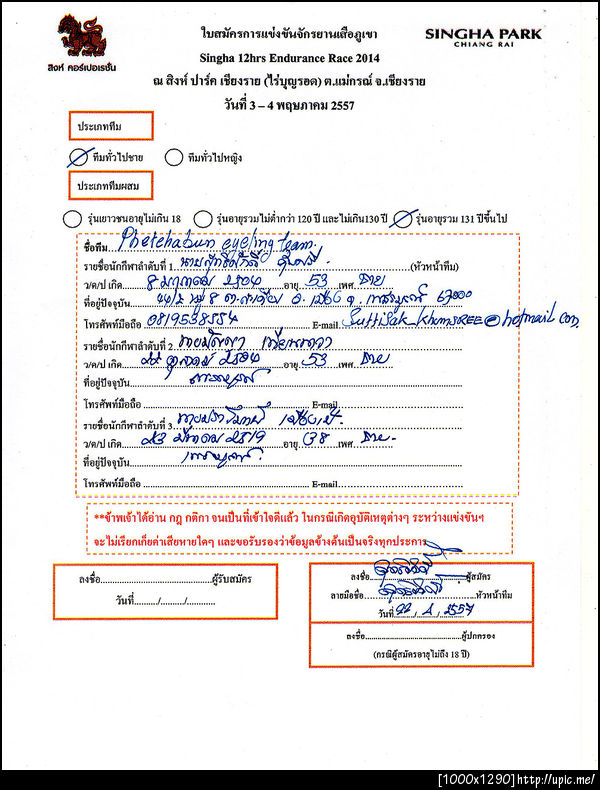 สิงห์ คอร์เปอเรชั่น
SINGHA PARK
CHIANG RAI
ใบสมัครการแข่งขันจักรยานเสือภูเขา
Singha 12hrs Endurance Race 2014
ณ สิงห์ ปาร์ค เชียงราย (ไร่บุญรอด) ต.แม่กรณ์ จ.เชียงราย
วันที่ 3 – 4 พฤษภาคม 2557
ประเภททีม
ทีมทั่วไปชาย ทีมทั่วไปหญิง
ประเภททีมผสม
รุ่นเยาวชนอายุไม่เกิน 18 รุ่นอายุรวมไม่ต่ำกว่า 120 ปี และไม่เกิน130 ปี รุ่นอายุรวม 131 ปีขึ้นไป
ชื่อทีม team.
รายชื่อนักกีฬาลำดับที่ 1 (หัวหน้าทีม)
ว/ด/ป เกิด 8 2504 อายุ 53 เพศ ชาย
ที่อยู่ปัจจุบัน 8 อ. เมือง จ. เพชรบูรณ์ 67000
โทรศัพท์มือถือ E-mail
รายชื่อนักกีฬาลำดับที่ 2
ว/ด/ป เกิด 22 ตุลาคม 2504 อายุ 53 เพศ ชาย
ที่อยู่ปัจจุบัน เพชรบูรณ์
โทรศัพท์มือถือ E-mail
รายชื่อนักกีฬาลำดับที่ 3
ว/ด/ป เกิด 23 2519 อายุ 38 เพศ ชาย
ที่อยู่ปัจจุบัน เพชรบูรณ์
โทรศัพท์มือถือ E-mail
**ข้าพเจ้าได้อ่าน กฎ กติกา จนเป็นที่เข้าใจดีแล้ว ในกรณีเกิดอุบัติเหตุต่างๆ ระหว่างแข่งขันฯ
จะไม่เรียกเก็ยค่าเสียหายใดๆ และขอรับรองว่าข้อมูลข้างต้นเป็นจริงทุกประการ
ลงชื่อ ผู้รับสมัคร
วันที่ / /
ลงชื่อ ผู้สมัคร
ลายมือชื่อ หัวหน้าทีม
วันที่ 22 / 4 / 2557
ลงชื่อ ผู้ปกครอง
(กรณีผู้สมัครอายุไม่ถึง 18 ปี)
[1000x1290]http://upic.me/